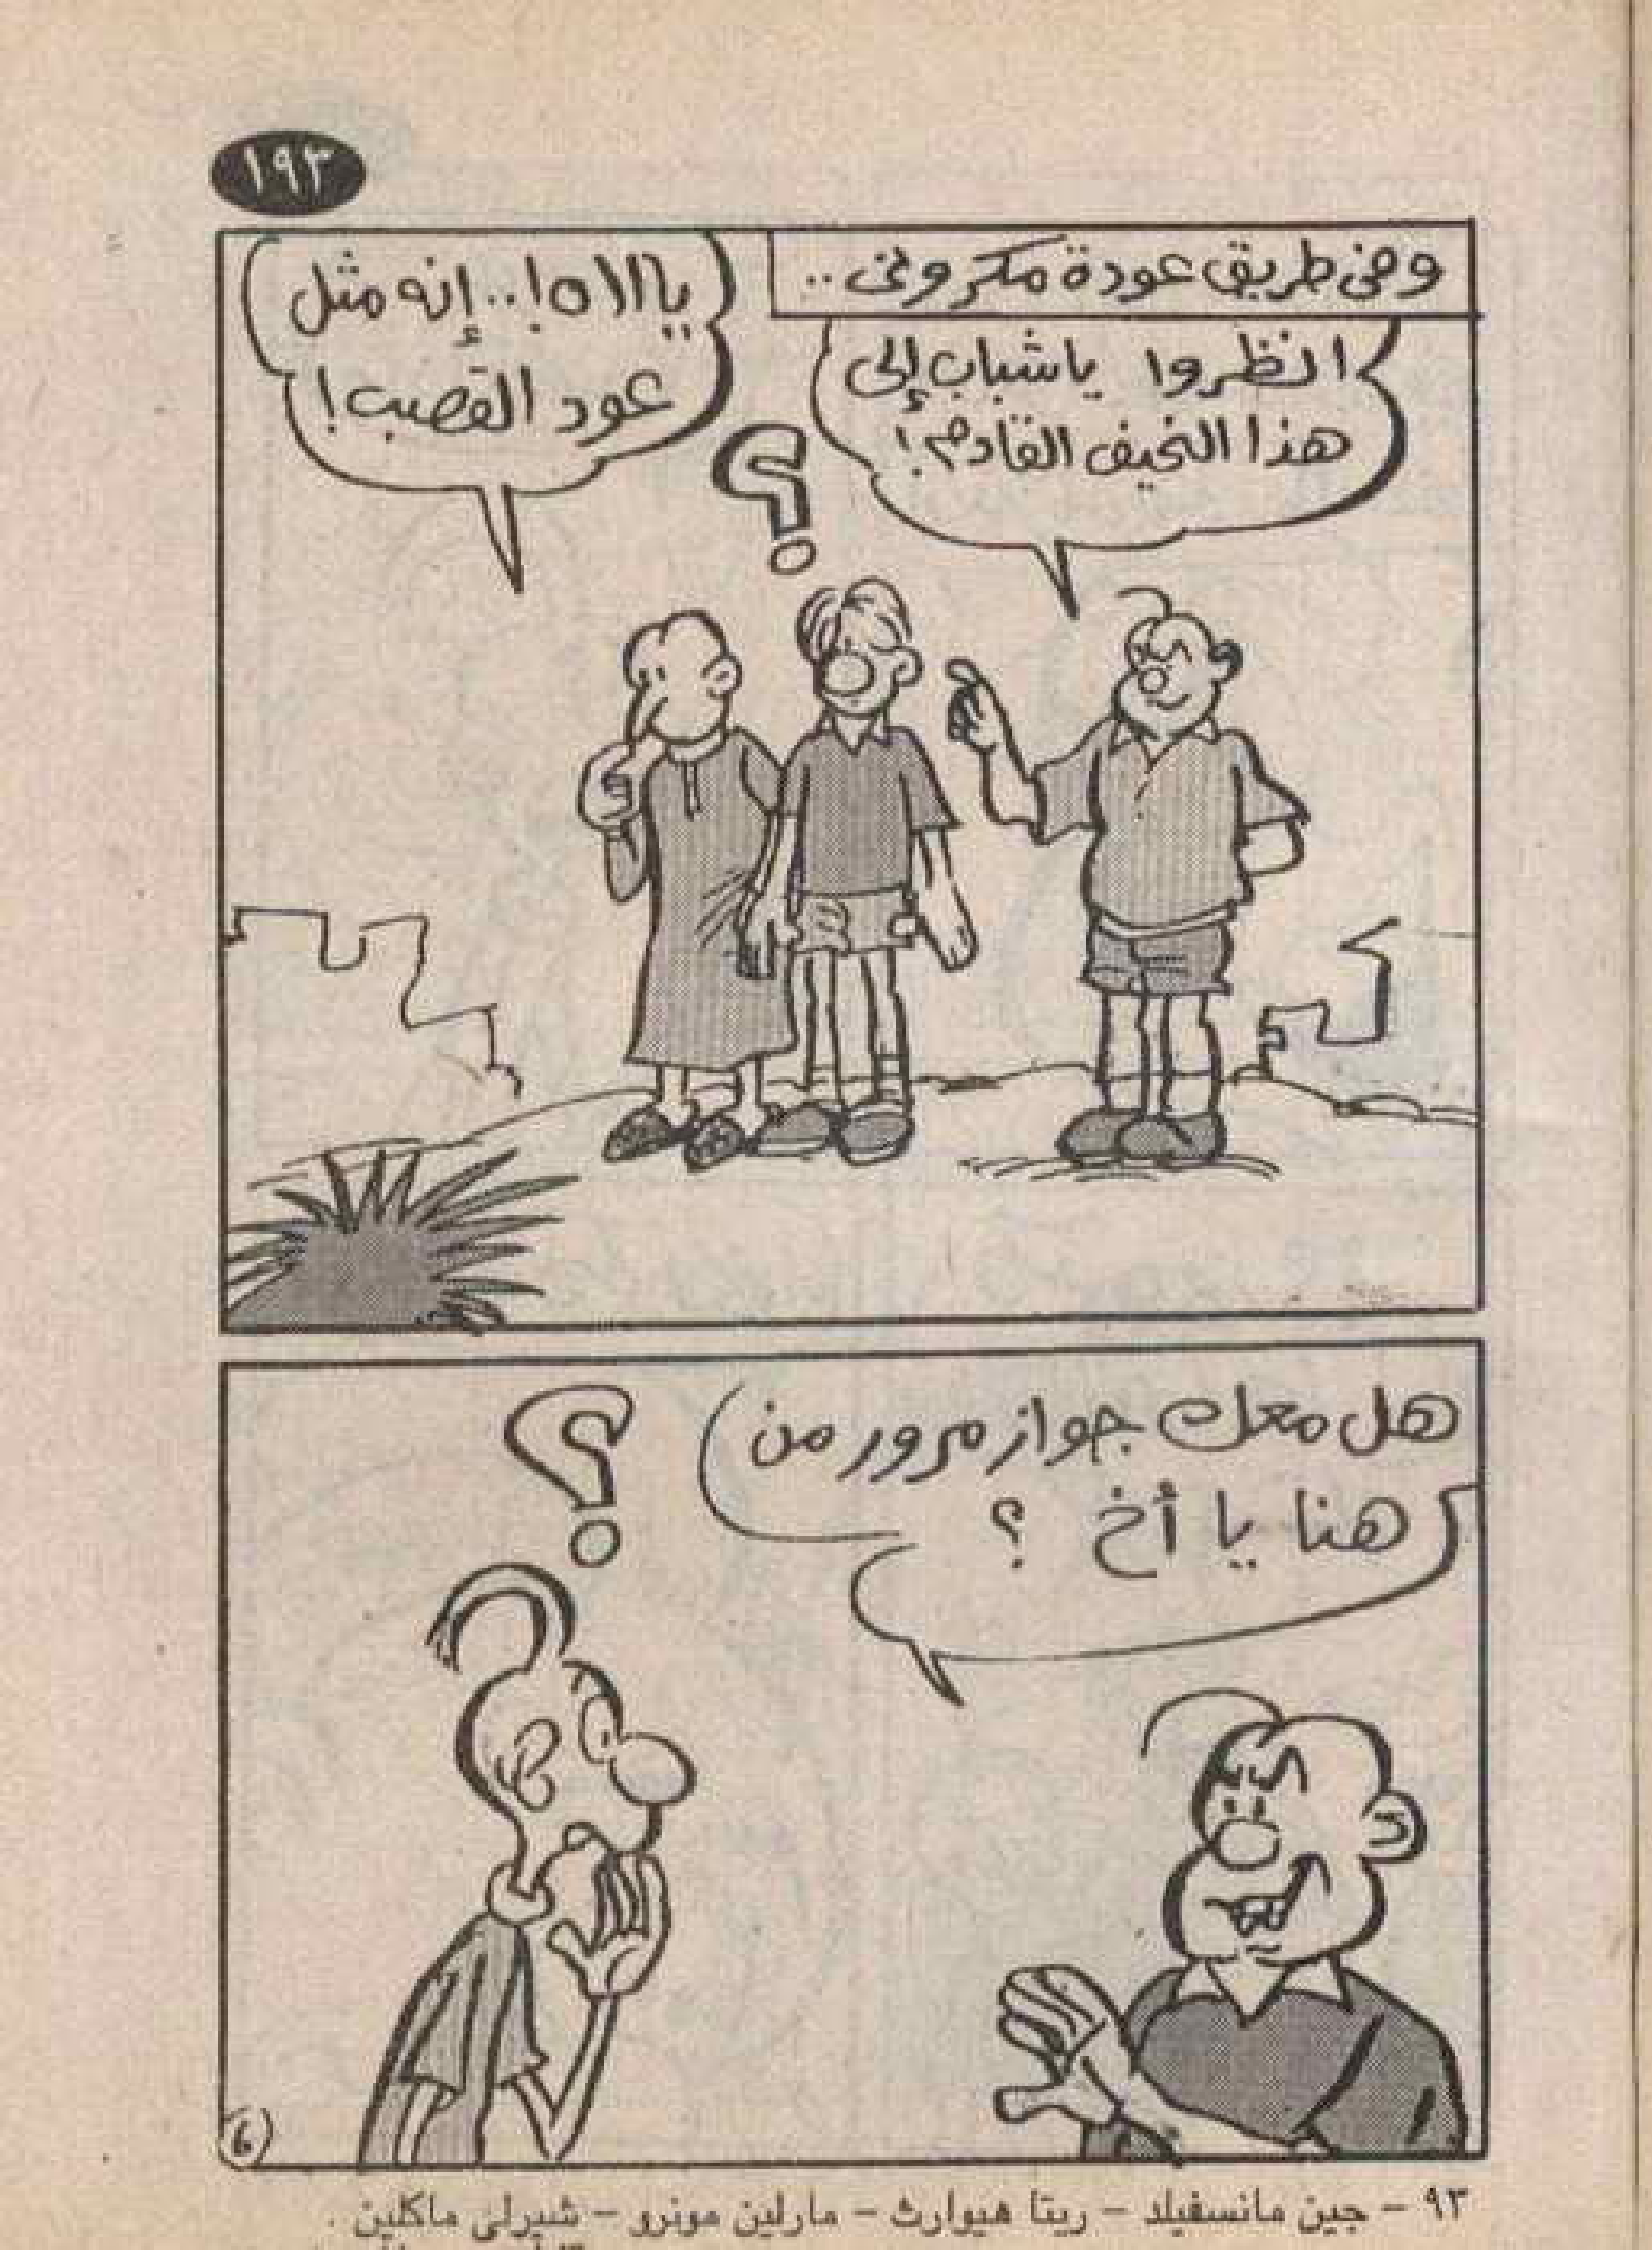 ١٩٣
وفى طريق عودة مكرونى ..
انظروا ياشباب إلى
هذا النحيف القادم !
يا الاه ! .. إنه مثل
عود القصب !
؟
هل معك جواز مرور من
هنا يا أخ ؟
؟
6
٩٣ - جين مانسفيلد - ريتا هيوارث - مارلين مونرو - شيرلى ماكلين .